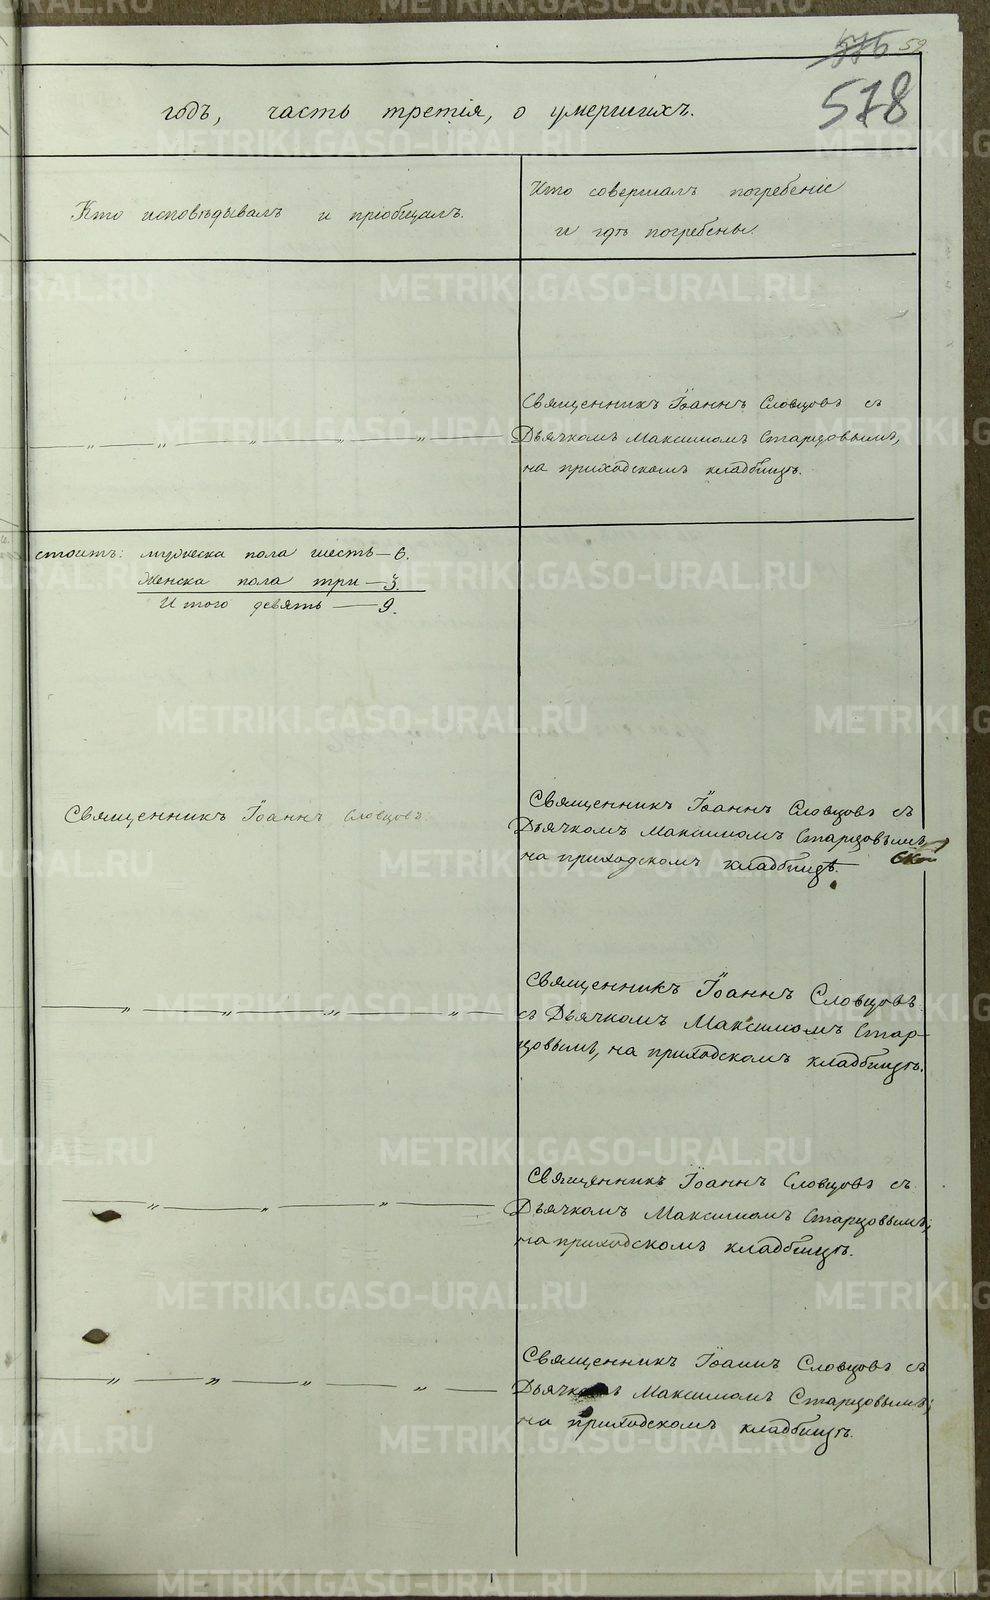 575 59
578
годъ, часть третія, о умершихъ.
Кто исповѣдывалъ и пріобщалъ.
Кто совершалъ погребеніе
и гдѣ погребены.
Священникъ Іоаннъ Словцовъ съ
— „ — „ — „ — „ — „ — Дьячкомъ Максимомъ Старцовымъ,
на приходскомъ кладбищѣ.
стоитъ: мужеска пола шесть — 6.
Женска пола три — 3.
Итого девять — 9.
Священникъ Іоаннъ Словцовъ.
Священникъ Іоаннъ Словцовъ съ
Дьячкомъ Максимомъ Старцовымъ
на приходскомъ кладбищѣ.
— „ — „ — „ — „ —
Священникъ Іоаннъ Словцовъ
съ Дьячкомъ Максимомъ Стар-
цовымъ, на приходскомъ кладбищѣ.
— „ — „ — „ —
Священникъ Іоаннъ Словцовъ съ
Дьячкомъ Максимомъ Старцовымъ;
на приходскомъ кладбищѣ.
— „ — „ — „ — „ —
Священникъ Іоаннъ Словцовъ съ
Дьячкомъ Максимомъ Старцовымъ;
на приходскомъ кладбищѣ.
METRIKI.GASO-URAL.RU